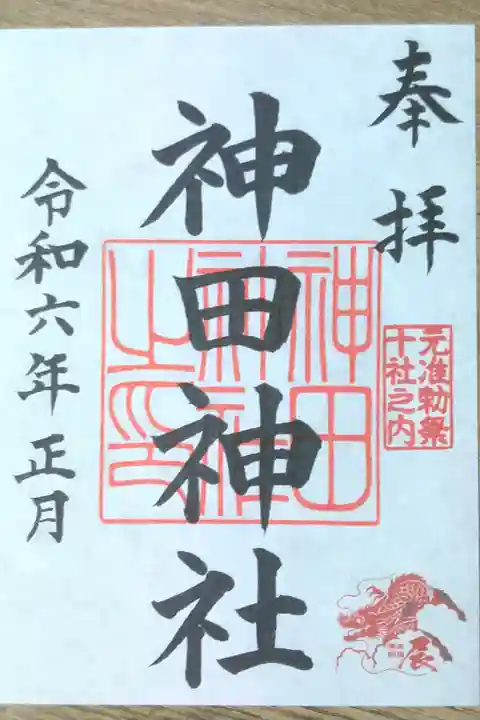 奉拝
元准勅祭
十社之内
神田神社
神田
神社
之印
辰
令和六年正月